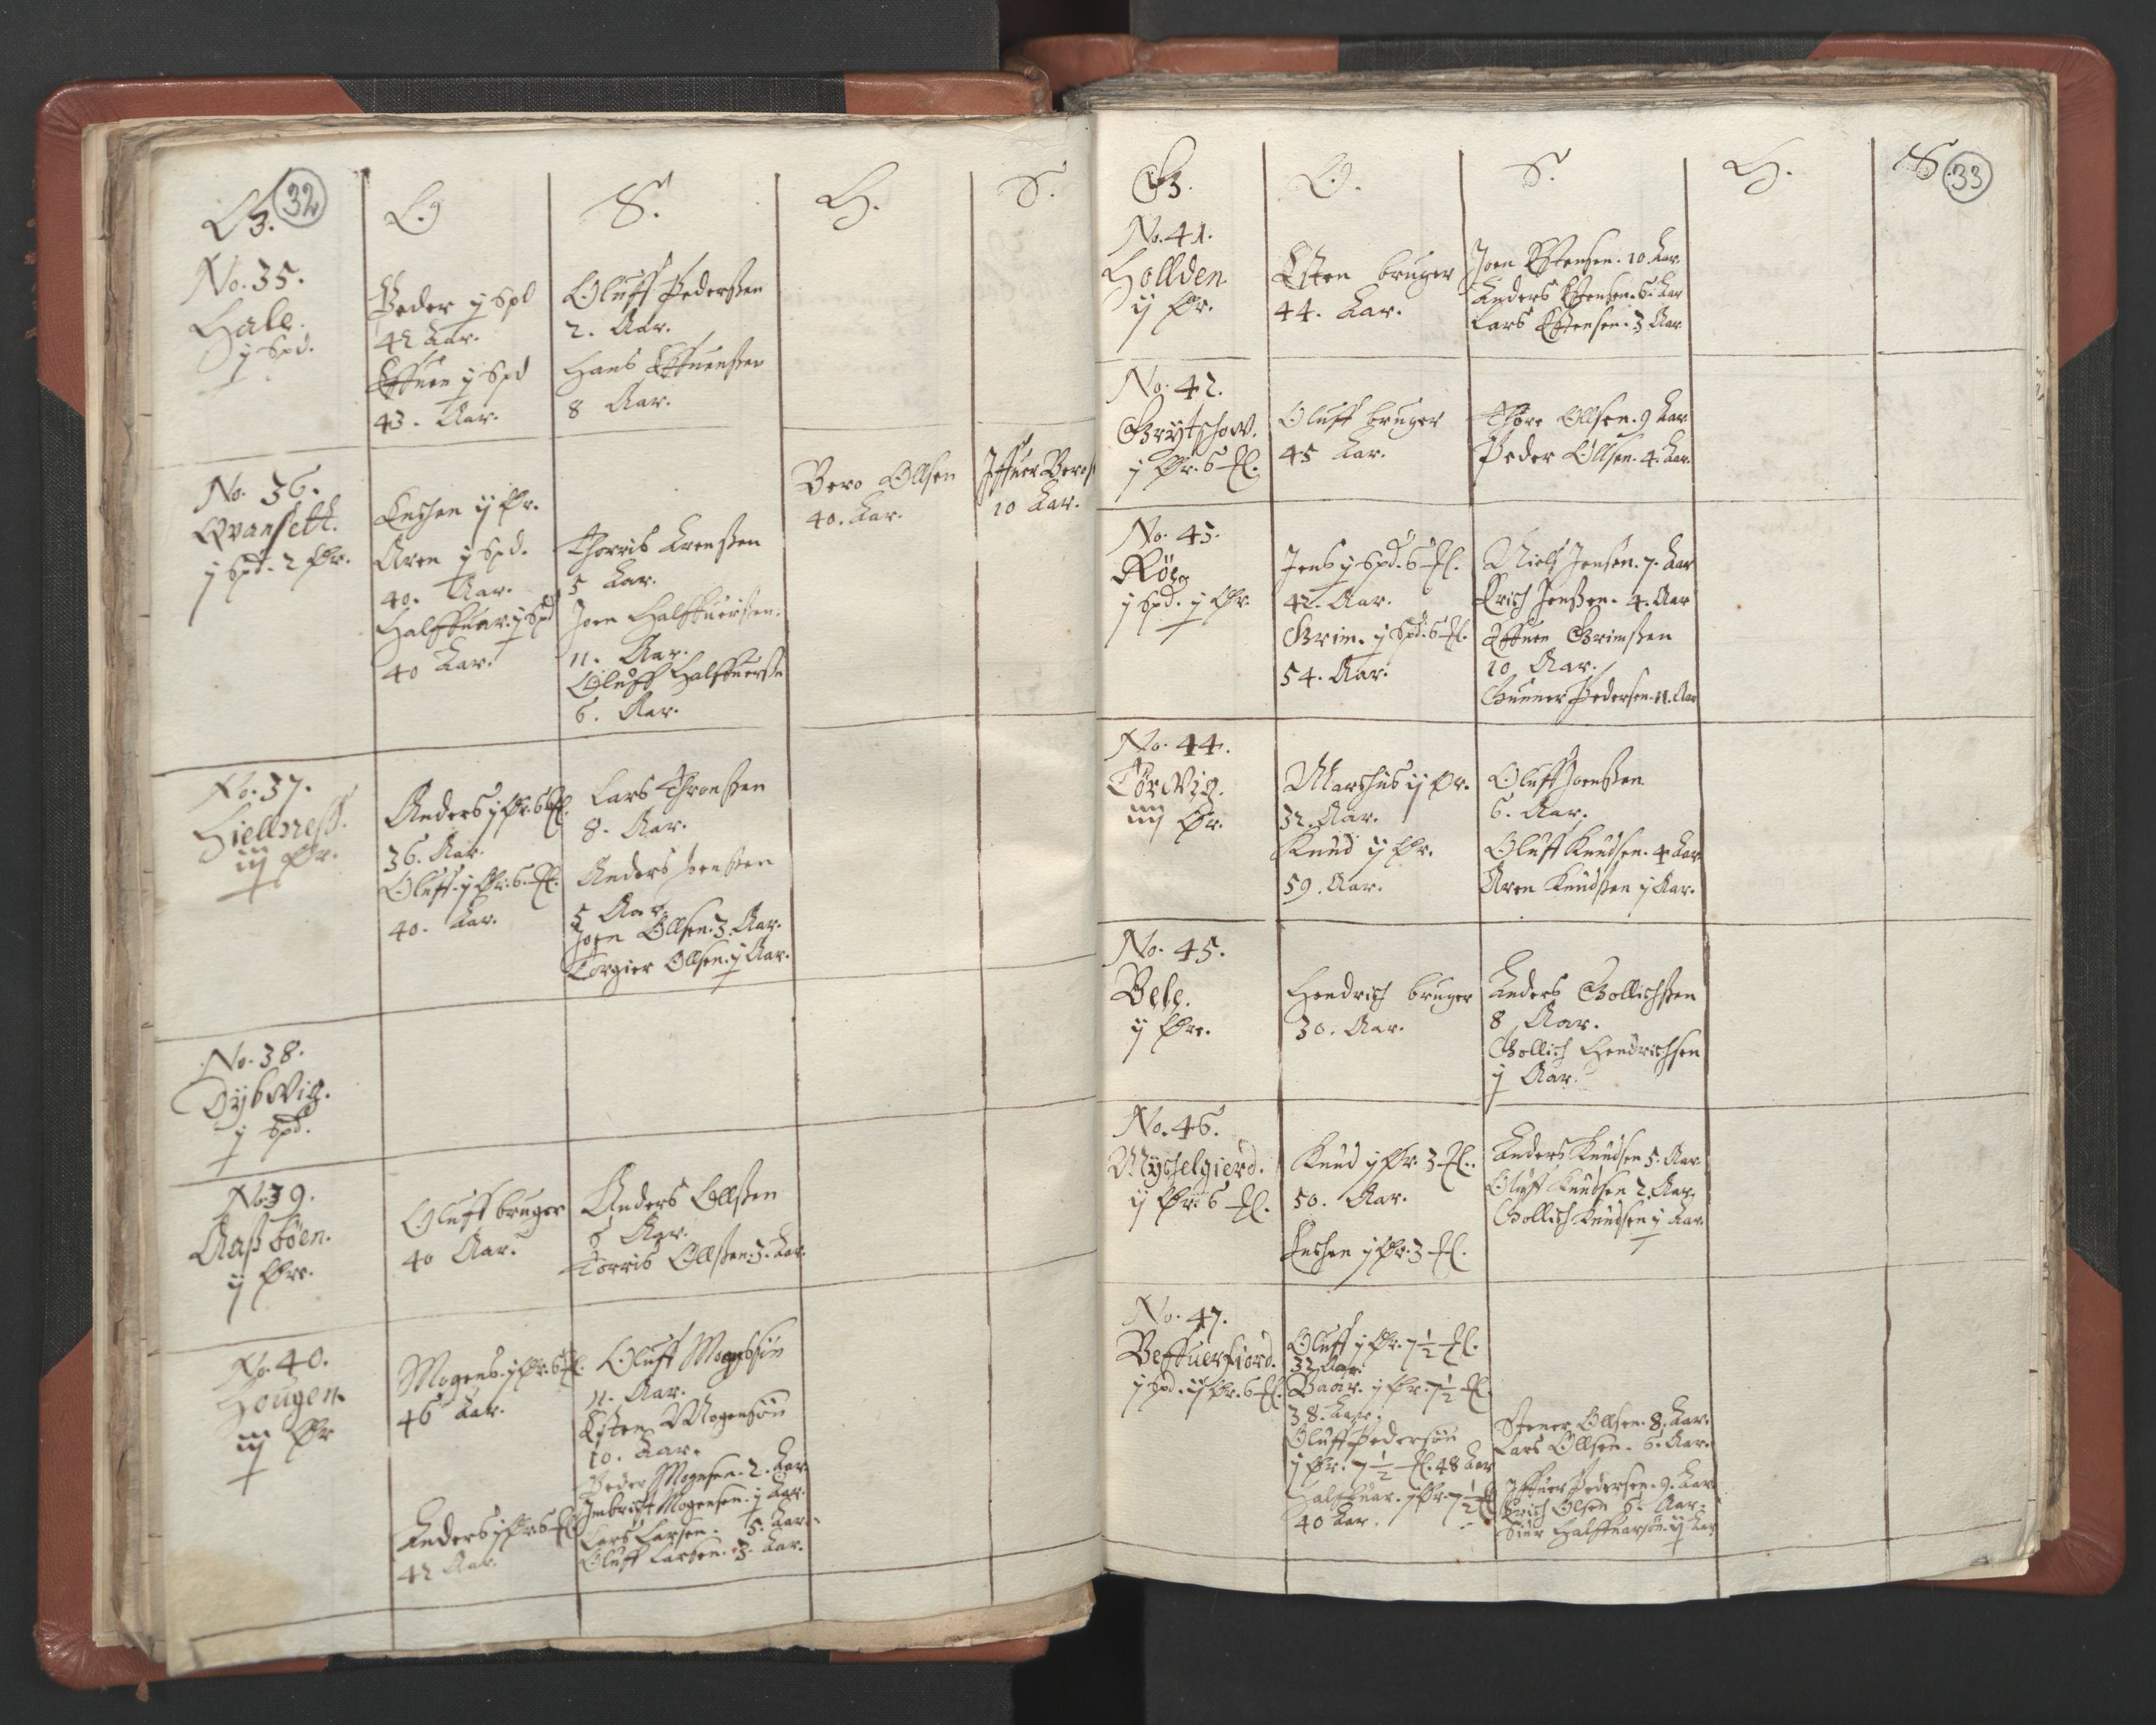 32
G. O. S. H. S.
No. 35.
Hale.
j Spd.
Peder j Spd
42 Aar.
Effuen j Spd
43. Aar.
Oluff Pederßen
2. Aar.
Hans Effuenßen
8 Aar.
No. 36.
Qvansett.
j Spd. 2 Ør.
Enchen ij Ør.
Aren j Spd.
40. Aar.
Halffuar. j Spd
40 Aar.
Thorris Arenßen
5 Aar.
Joen Halffuerßen.
11. Aar.
Oluff Halffuerße
6. Aar.
Bero Ollsen
40. Aar.
Iffuer Beroß
10 Aar.
No. 37.
Hiellneß.
iij Ør.
Anders j Ør. 6
36. Aar.
Oluff. j Ør. 6
40. Aar.
Lars Thronßen
8. Aar.
Anders Joenßen
5 Aar
Joen Ollsen. 3. Aar.
Torgier Ollsen. j Aar.
No. 38.
Dybwig.
j Spd.
No. 39.
Aaßbøen.
ij Øre.
Oluff bruger
40 Aar.
Anders Ollßen
8 Aar.
Torris Ollßen. 3. Aar.
No. 40.
Hougen.
iij Ør
Mogens. j Ør. 6
46 Aar.
Anders j Ør 6
42 Aar.
Oluff Mogensøn
11. Aar.
Esten Mogensøn
10. Aar.
Peder Mogensen. 2. Aar
Imbricht Mogensen. j Aar.
Lars Larsen. 5. Aar.
Oluff Larsen. 3. Aar.
33
G. O. S. H. S.
No. 41.
Hollden
ij Ør.
Esten bruger
44. Aar.
Joen Estensen. 10 Aar
Anders Estensen. 6. Aar
Lars Estensen. 3 Aar
No. 42.
Grytschow.
j Ør. 6
Oluff bruger
45 Aar.
Thore Ollsen. 9 Aar
Peder Ollsen. 4. Aar.
No. 43.
Røeg
j Spd. j Ør.
Jens j Spd. 6
42. Aar.
Grim. j Spd. 6
54. Aar.
Niels Jensen. 7. Aar
Erich Jenßen. 4. Aar
Effuen Grimßen
10 Aar.
Gunner Pedersen. 11. Aar
No. 44.
Tørwig.
iiij Ør.
Marchus ij Ør.
32. Aar.
Knud ij Ør.
59. Aar.
Oluff Joenßen
6. Aar.
Oluff Knudsen. 4 Aar
Aren Knudßen j Aar.
No. 45.
Bele.
ij Øre.
Hendrich bruger
30. Aar.
Anders Gollichßen
8 Aar.
Gollich Hendrichsen
j Aar.
No. 46.
Mychelgierd.
ij Ør. 6
Knud j Ør. 3
50. Aar.
Enchen j Ør. 3
Anders Knudsen 5. Aar
Oluff Knudsen 2. Aar.
Gollich Knudsen j Aar.
No. 47.
Beffuerfiord.
j Spd. ij Ør. 6
Oluff j Ør. 7 1/2
32 Aar.
Baar. j Ør. 7 1/2
38. Aar.
Oluff Pedersøn
j Ør. 7 1/2 48 Aar
Halffuar. j Ør. 7 1/2
40 Aar.
Stener Ollsen. 8. Aar.
Lars Ollsen. 6. Aar.
Iffuer Pedersen. 9. Aar
Erich Olsen 6. Aar.
Siur Halffuarsøn. ij Aar